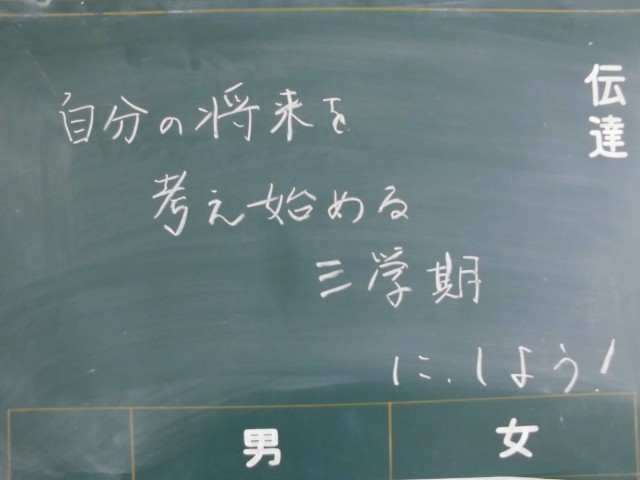 伝達
自分の将来を
考え始める
三学期
に、しよう!
男
女